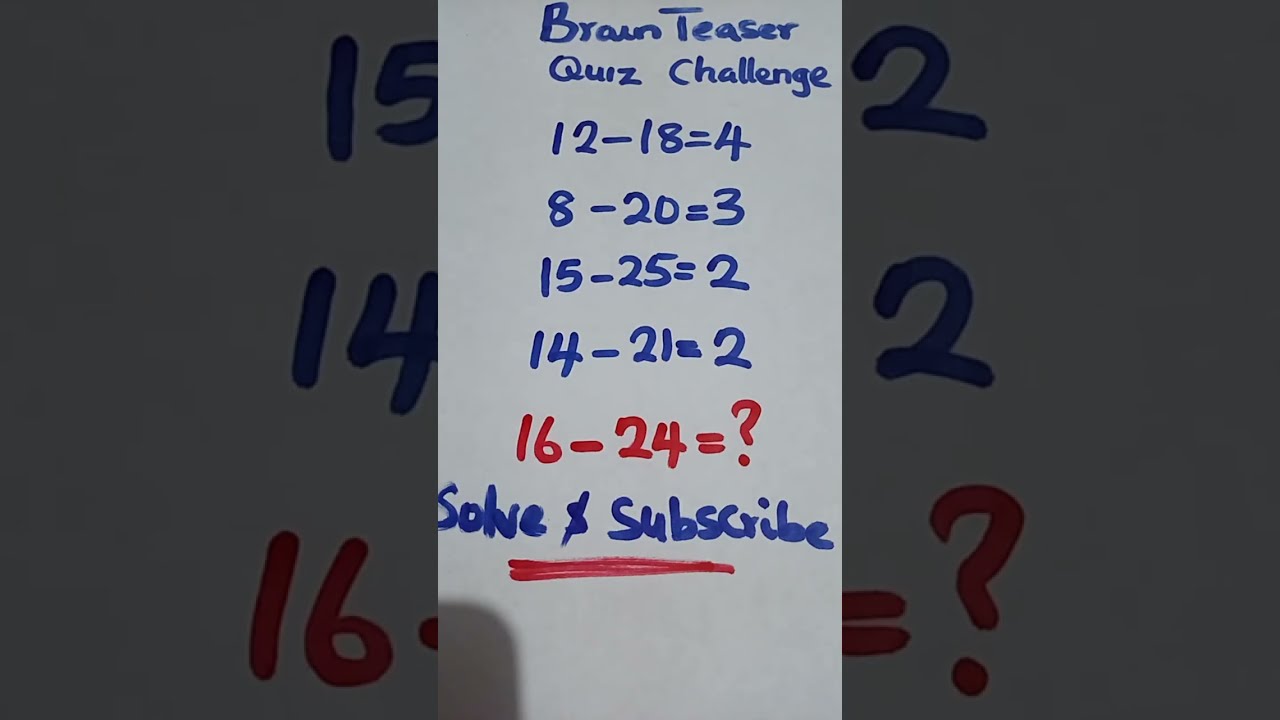 Brain Teaser
Quiz Challenge
12-18=4
8-20=3
15-25=2
14-21=2
16-24=?
Solve & Subscribe